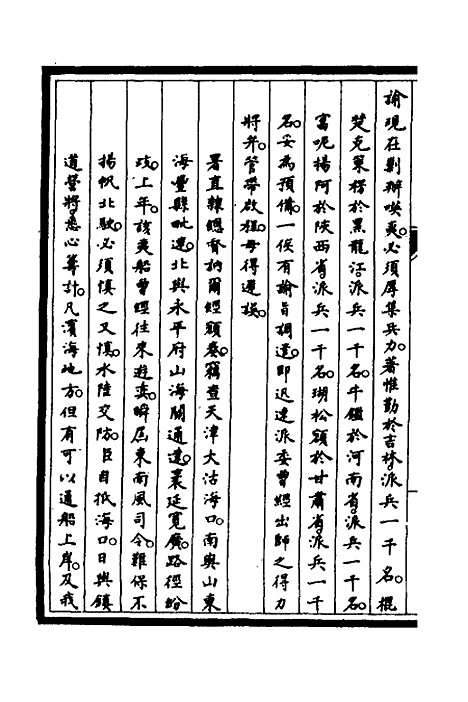 諭現在剿辦嘆夷。必須厚集兵力。著惟勤於吉林派兵一千名。棍
楚克策楞於黑龍江派兵一千名。牛鑑於河南省派兵一千名。
富呢揚阿於陝西省派兵一千名。瑚松額於甘肅省派兵一千
名。妥為預備。一俟有諭旨調遣。即迅速派委曾經出師之得力
將弁。管帶啟程。毋得遲誤。
署直隸總督訥爾經額奏。竊查天津大沽海口。南與山東
海豐縣毗連。北與永平府山海關通連。袤延寬廣。路徑紛
歧。上年該夷船曾經往來遊奕。瞬屆東南風司令。難保不
揚帆北駛。必須慎之又慎。水陸交防。臣自抵海口。日與鎮
道營將。悉心籌計。凡濱海地方。但有可以通船上岸。及我